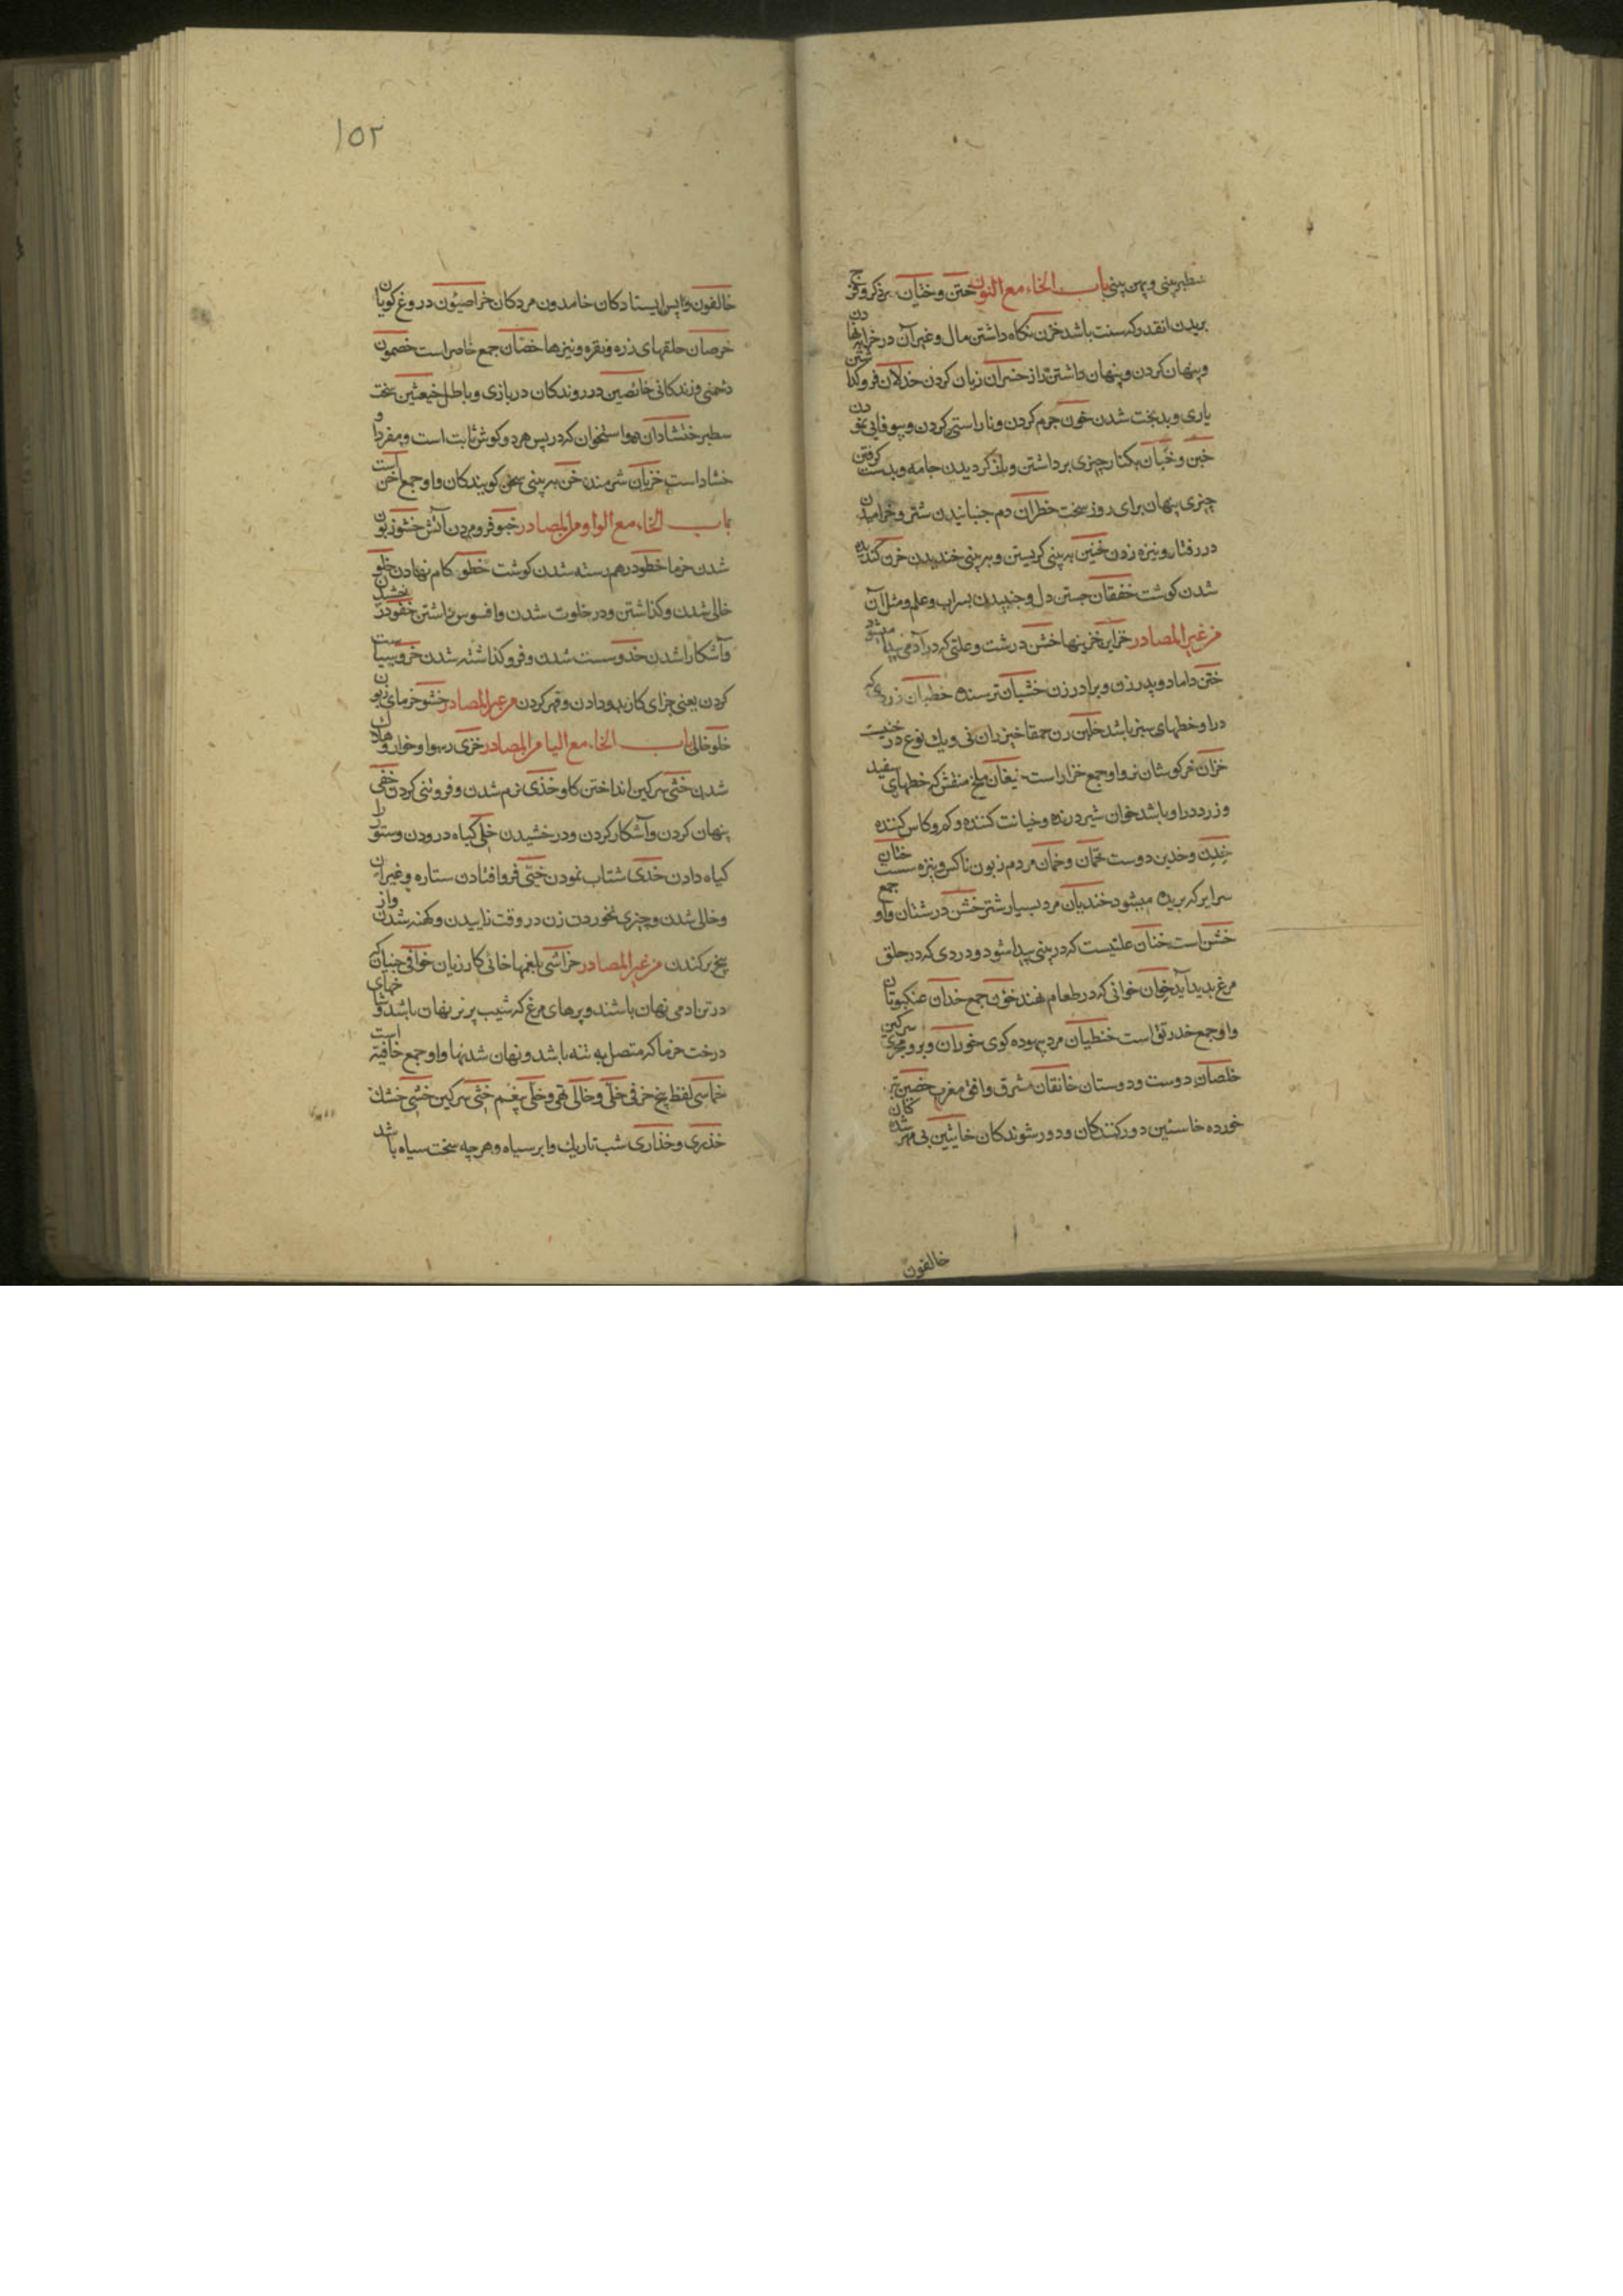 سطبر بینی و پهن بینی باب الخاء مع النون ختن و ختان بریدن ذکر و فرج
بریدن انقدر که سنت باشد خزن نکاه داشتن مال و غیر آن در خزانه
و پنهان کردن و پنهان داشتن راز خسران زیان کردن خذلان فروکذاشتن
یاری و بدبخت شدن خون جرم کردن و ناراستی کردن و بیوفایی نمودن
خبن و خبان بکنار چیزی برداشتن و بلند کردیدن جامه و بدست کرفتن
چیزی پنهان برای روز سخت خطران دم جنبانیدن شتر و خرامیدن
در رفتار و نیزه زدن خنین به بینی کریستن و به بینی خندیدن خزن کندیده
شدن کوشت خفقان جستن دل و جنبیدن سراب و علم و مثل آن
من غیر المصادر خزاین خزینها خشن درشت و علتی که در آدمی پیدا میشود
ختن داماد و پدر زن و برادر زن خشیان ترسنده خطبان زردی که
در او خطهای سبز باشد خلبن زن حمقا خیزران نی و یک نوع درختیست
خزان خرکوشان نر و او جمع خزاز است خیفان ملخ منقش که خطهای سفید
و زرد در او باشد خوان شیر درنده و خیانت کننده و کم و کاس کننده
خدن و خدین دوست خمان و خمان مردم زبون ناکس و نیزه سست ختان
سرایر که بریده میشود خندیان مرد بسیار شتر خشن درشتان و او جمع
خشن است خنان علتیست که در بینی پیدا شود و دردی که در حلق
مرغ پدید آید خوان خوانی که در طعام نهند خون جمع خدان عنکبوتان
و او جمع خدرنق است خنطیان مرد بیهوده کوی خوران و بر و مجری سرکین
خلصان دوست و دوستان خافقان مشرق و افق مغرب خضین تبر
خورده خاسئین دور کنندکان و دور شوندکان خایبین بی بهره شدکان
خالفون
۱۵۲
خالفون واپس ایستادکان خامدون مردکان خراصیون دروغ کویان
خرصان حلقهای زره و نقره و نیزها خصان جمع خاص است خصمون
دشمنی و زندکانی خائضین در روندکان در بازی و باطل خبعثین سخت
سطبر خششادان دو استخوان که در پس هر دو کوش ثابت است و مفرد او
خشاد است خزیان شرمنده خن به بینی سخن کویندکان و او جمع اخن است
باب الخاء مع الواو من المصادر خبو فرو مردن آتش خشو زبون
شدن خرما خظو در هم رسته شدن کوشت خطو کام نهادن خلو
خالی شدن و کذاشتن و در خلوت شدن و افسوس داشتن خفو درخشیدن
و آشکارا شدن خذو سست شدن و فروکذاشته شدن خزو سیاست
کردن یعنی جزای کار بد دادن و قهر کردن من غیر المصادر خشو خرمای زبون
خلو خالی باب الخاء مع الیا من المصادر خزی رسوا و خوار و هلاک
شدن خثی سرکین انداختن کاو خذی نرم شدن و فروتنی کردن خفی
پنهان کردن و آشکار کردن و درخشیدن خلی کیاه درودن و ستور را
کیاه دادن خدی شتاب نمودن خیّ فرو افتادن ستاره و غیر آن
و خالی شدن و چیزی نخوردن زن در وقت زاییدن و کهنه شدن و از
بیخ برکندن من غیر المصادر خراشی بلغمها خانی کار زیان خوافی جنیان که
در تن ادمی نهان باشند و پرهای مرغ که شیب پر نر نهان باشد و شاخهای
درخت خرما که متصل به تنه باشد و نهان شدنها و او جمع خافیه است
خماسی لفظ پنج حرفی خلی و خالی تهی و خلی بیغم خثی سرکین خشی خشک
خذری و خذاری شب تاریک و ابر سیاه و هرچه سخت سیاه باشد